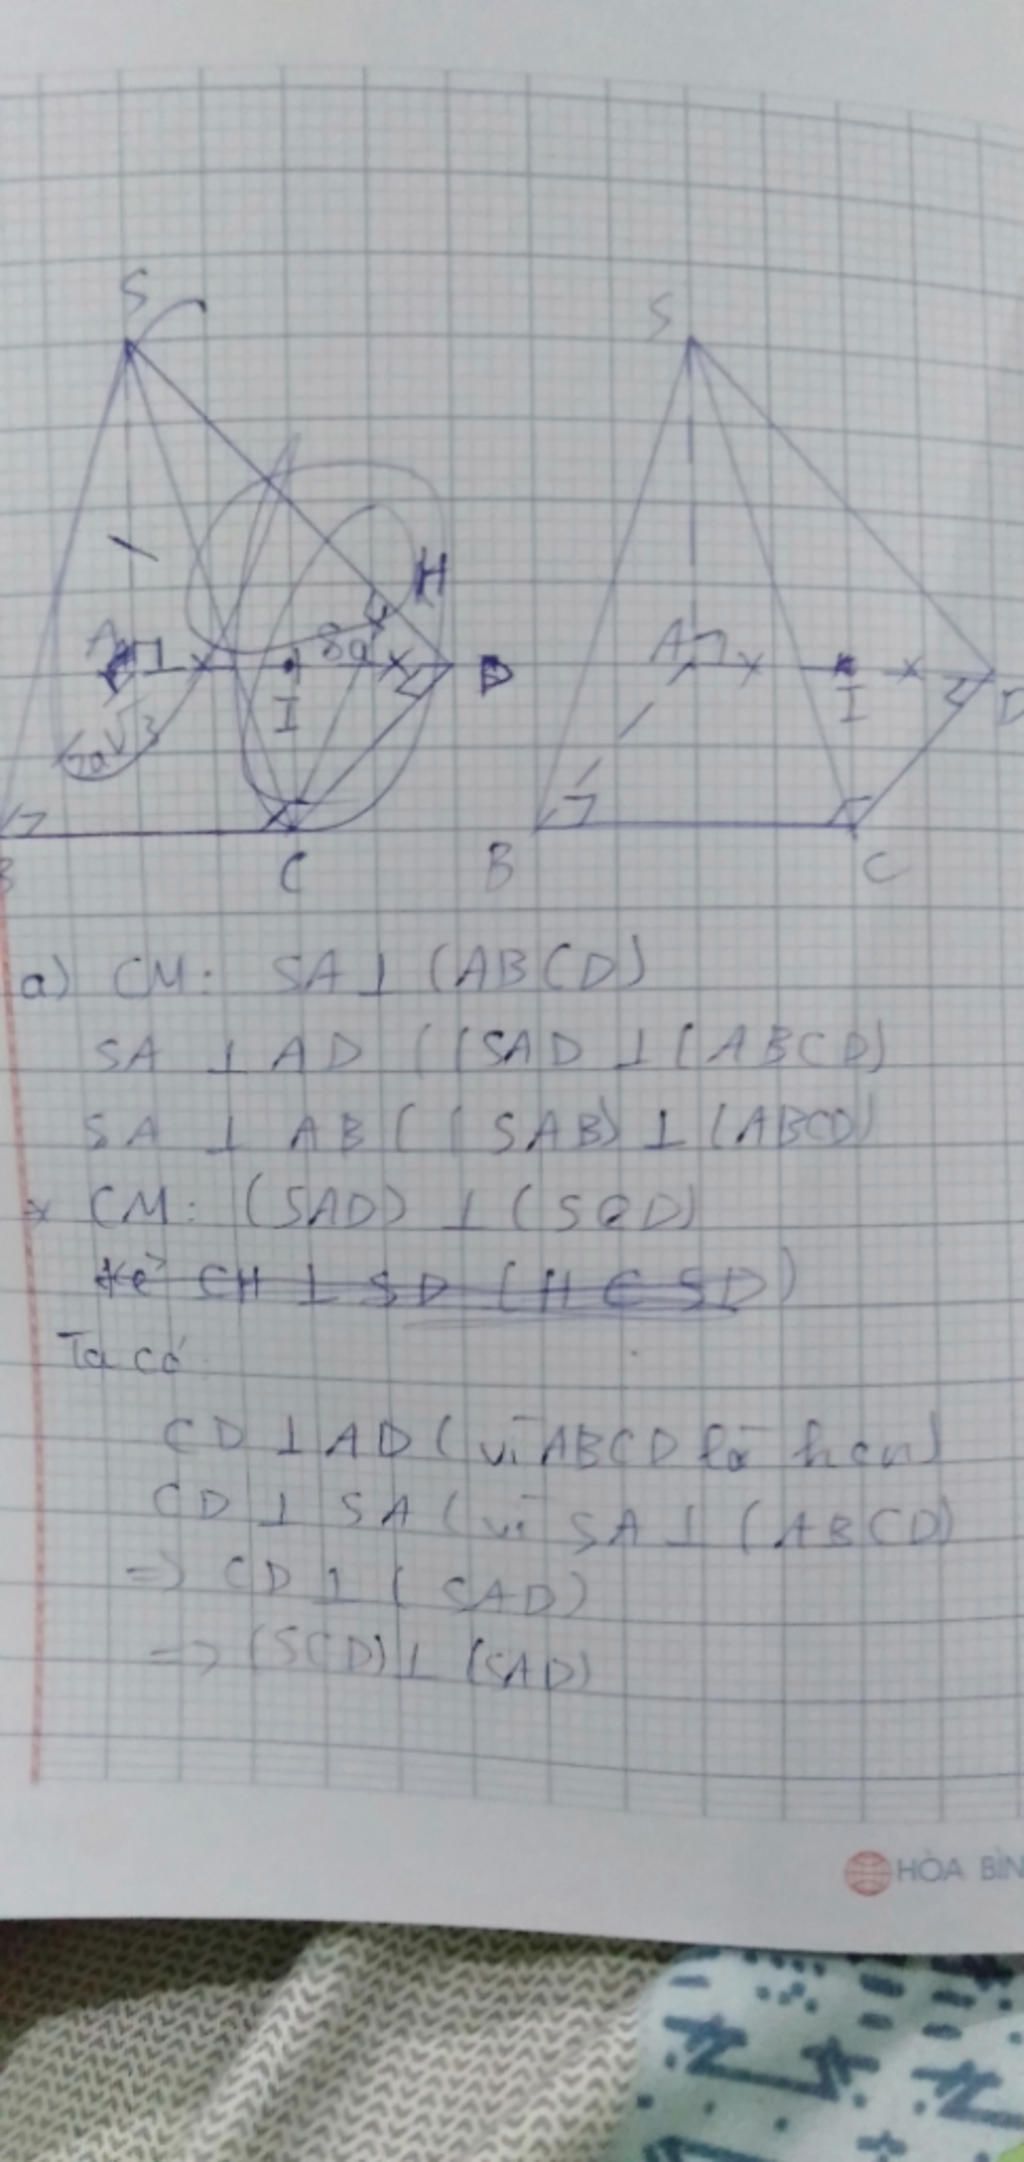 S
S
H
A
8a
D
I
7a√3
B
C
A
I
D
B
C
a) CM: SA ⊥ (ABCD)
SA ⊥ AD ((SAD ⊥ (ABCD)
SA ⊥ AB ((SAB) ⊥ (ABCD)
* CM: (SAD) ⊥ (SCD)
Kẻ CH ⊥ SD (H ∈ SD)
Ta có:
CD ⊥ AD (vì ABCD là hcn)
CD ⊥ SA (vì SA ⊥ (ABCD)
=> CD ⊥ (SAD)
=> (SCD) ⊥ (SAD)
HÒA BÌN